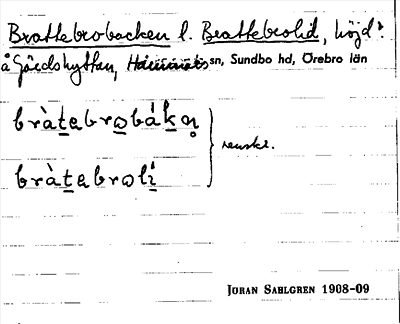 Brattebrobacken l. Brattebrolid, höjd:
å Gårdshyttan, sn, Sundbo hd, Örebro län
bràtebrobákn̥
bràtebrolí
JÖRAN SAHLGREN 1908-09